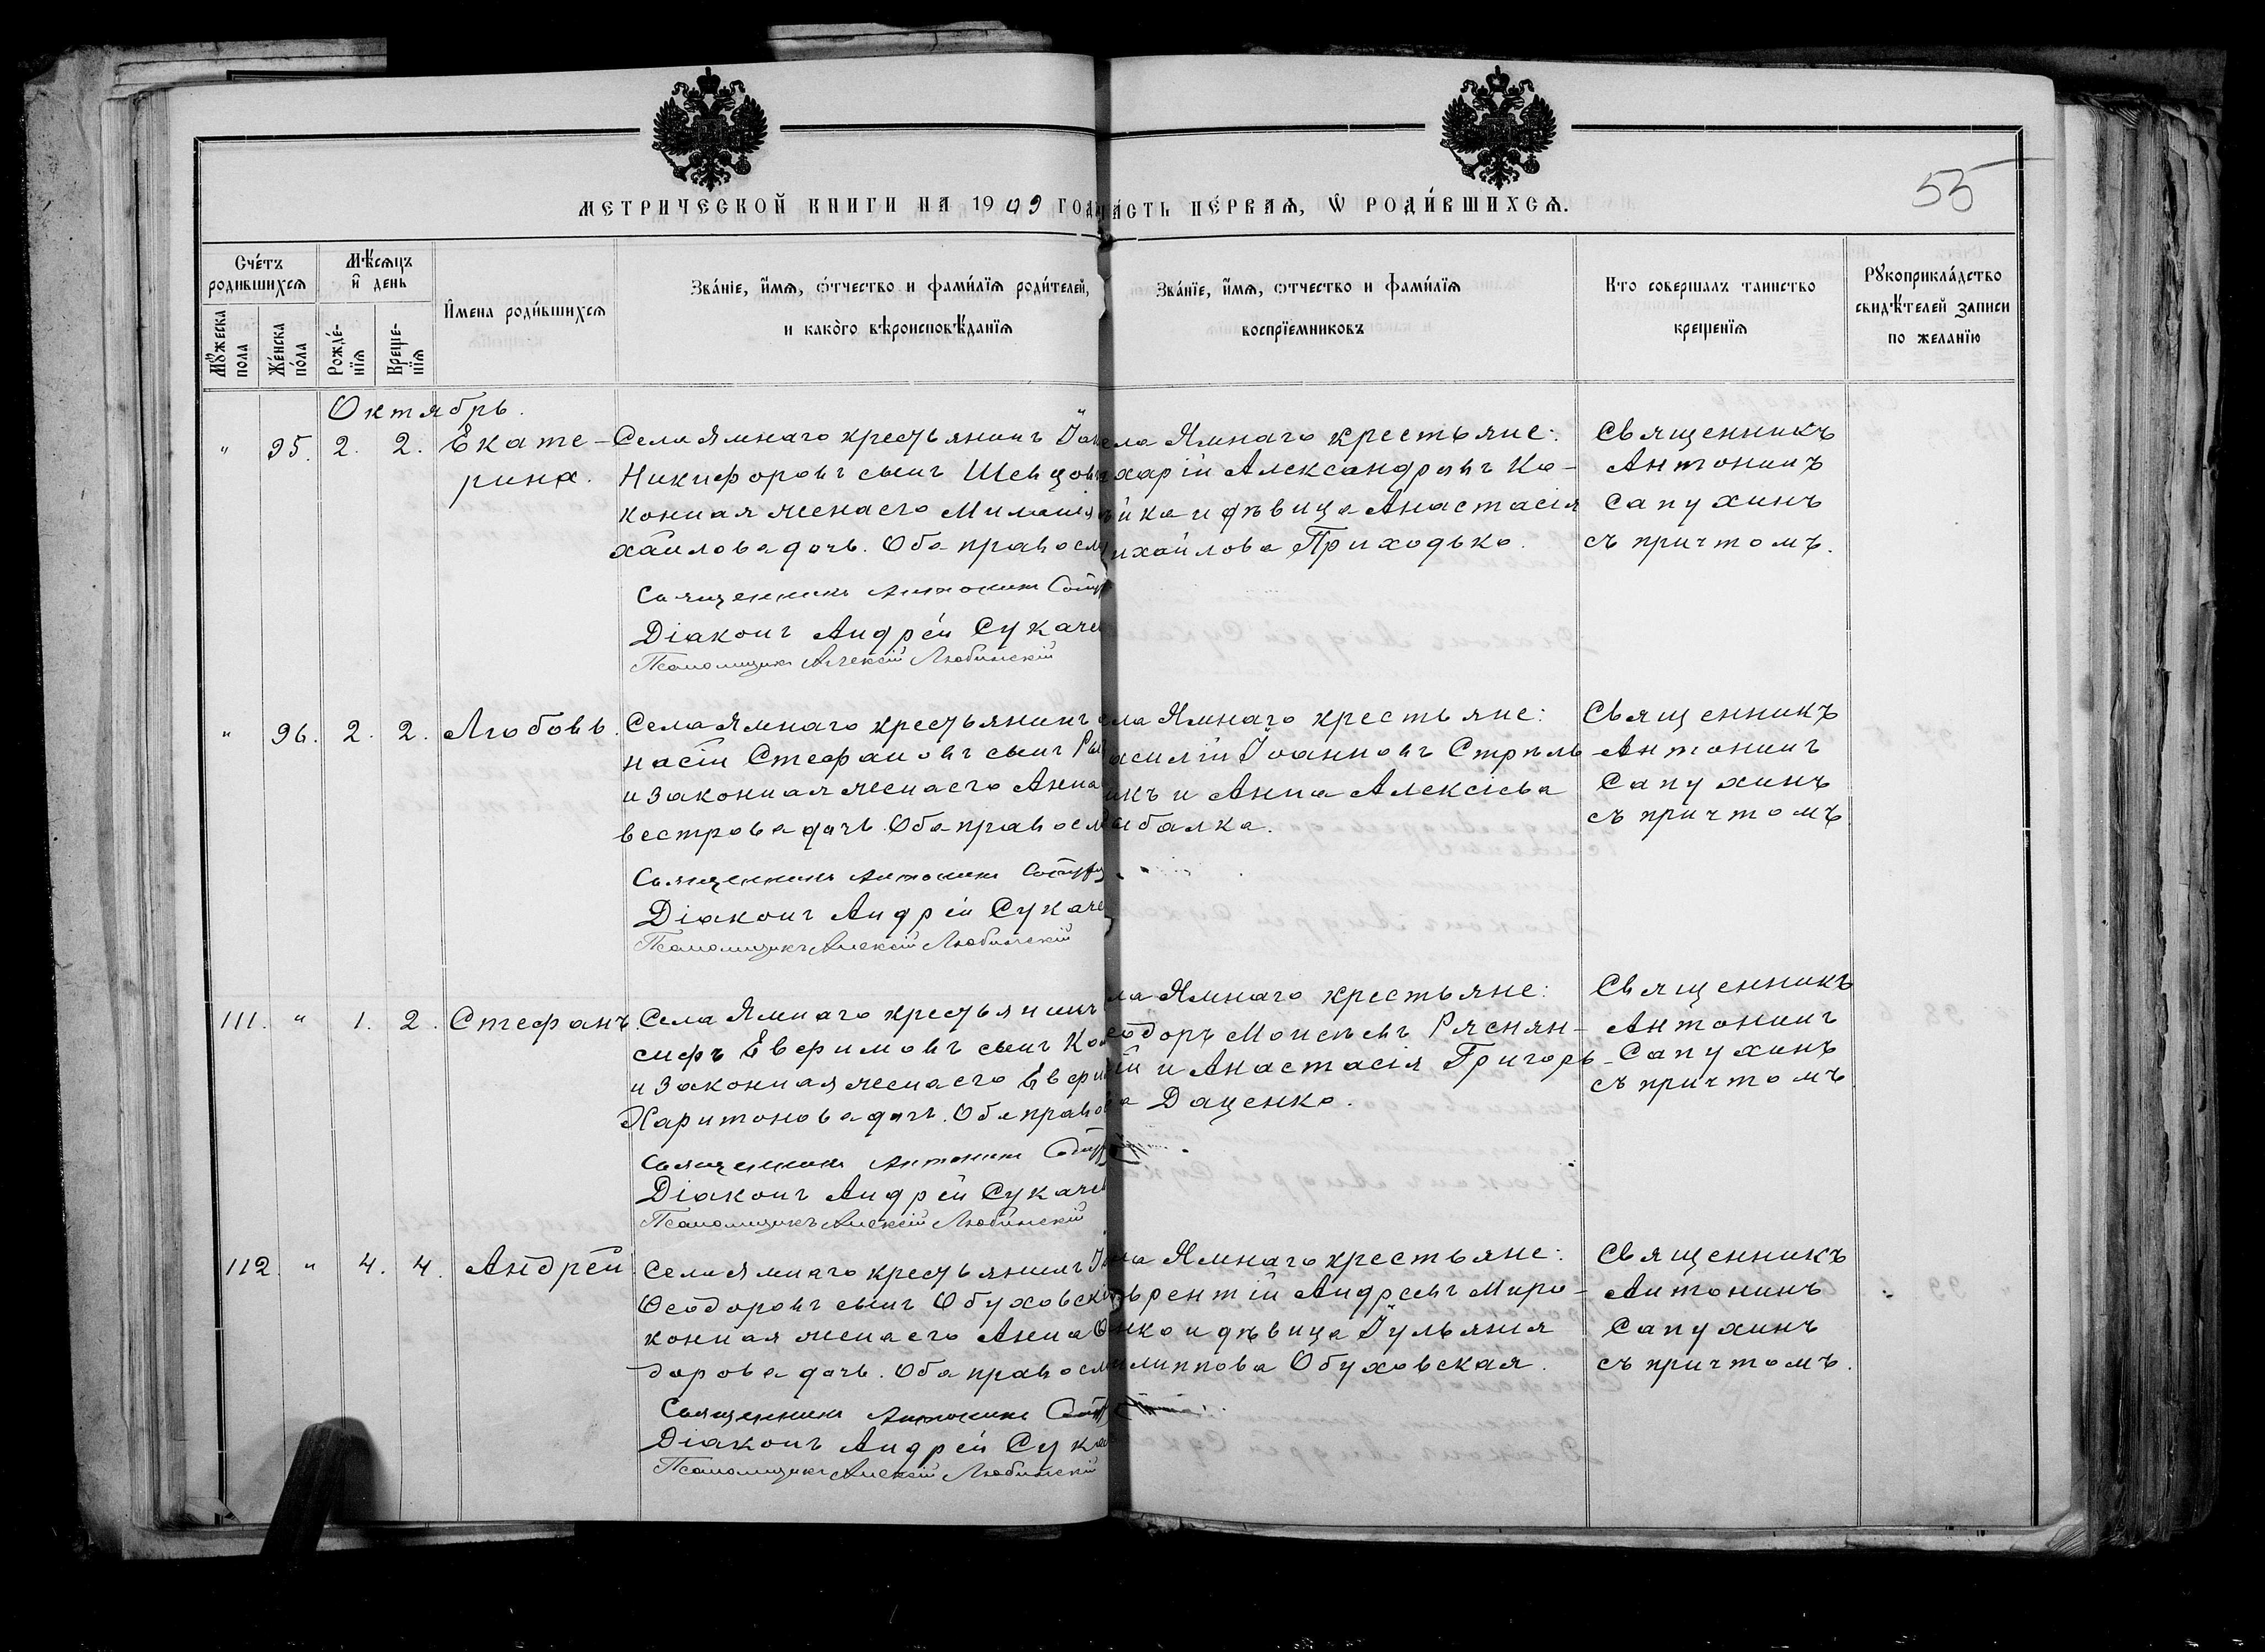 МЕТРИЧЕСКОЙ КНИГИ НА 1909 ГОД
ЧАСТЬ ПЕ́РВАѦ, Ѡ РОДИ́ВШИХСѦ.
55
Счéтъ родившихсѧ
Мꙋ́жеска пола
Жéнска пóла
Мѣ́сѧцъ и день
Рождé-нїѧ
Креще-нїѧ
И́мена роди́вшихсѧ
Звáнїе, и́мѧ, ѻ́тчество и фами́лїѧ роди́телей,
и какòго вѣроисповѣ́данїѧ
Звáнїе, и́мѧ, ѻ́тчество и фами́лїѧ
воспрїемниковъ
Кто совершалъ таинство
крещенїѧ
Рꙋкоприклáдство
свидѣ́телей записи
по желанїю
Октябрь.
" 95. 2. 2. Екате-
рина.
Села Ямнаго крестьянинъ
Никифоровъ сынъ Шевцовъ
конная жена его Миланія
хаилова дочь. Оба правосл
Священникъ Антонинъ
Діаконъ Андрей Сукаче
Псаломщикъ Алексій Любинскій
ела Ямнаго крестьяне:
харій Александровъ Ко-
йка и дѣвица Анастасія
ихайлова Приходько.
Священникъ
Антонинъ
Сапухинъ
съ причтомъ.
" 96. 2. 2. Любовь.
Села Ямнаго крестьянинъ
насій Стефановъ сынъ Ры
и законная жена его Анна
вестрова дочь. Оба правосл
Священникъ Антонинъ
Діаконъ Андрей Сукаче
Псаломщикъ Алексій Любинскій
ла Ямнаго крестьяне:
асилій Іоанновъ Стрѣль-
икъ и Анна Алексіева
ыбалка.
Священникъ
Антонинъ
Сапухинъ
съ причтомъ
111. " 1. 2. Стефанъ.
Села Ямнаго крестьянинъ
сифъ Евфимовъ сынъ Ко
и законная жена его Евфи
Харитонова дочь. Оба право
Священникъ Антонинъ
Діаконъ Андрей Сукаче
Псаломщикъ Алексій Любинскій
ла Ямнаго крестьяне:
еодоръ Моисѣевъ Ряснян-
ій и Анастасія Григорь-
ва Даценко.
Священникъ
Антонинъ
Сапухинъ
съ причтомъ
112. " 4. 4. Андрей
Села Ямнаго крестьянинъ
Ѳеодоровъ сынъ Обуховскі
конная жена его Анна Ѳ
дорова дочь. Оба правосл
Священникъ Антонинъ
Діаконъ Андрей Сука
Псаломщикъ Алексій Любинскій
ла Ямнаго крестьяне:
врентій Андреевъ Миро-
нко и дѣвица Іульянія
илиппова Обуховская.
Священникъ
Антонинъ
Сапухинъ
съ причтомъ.